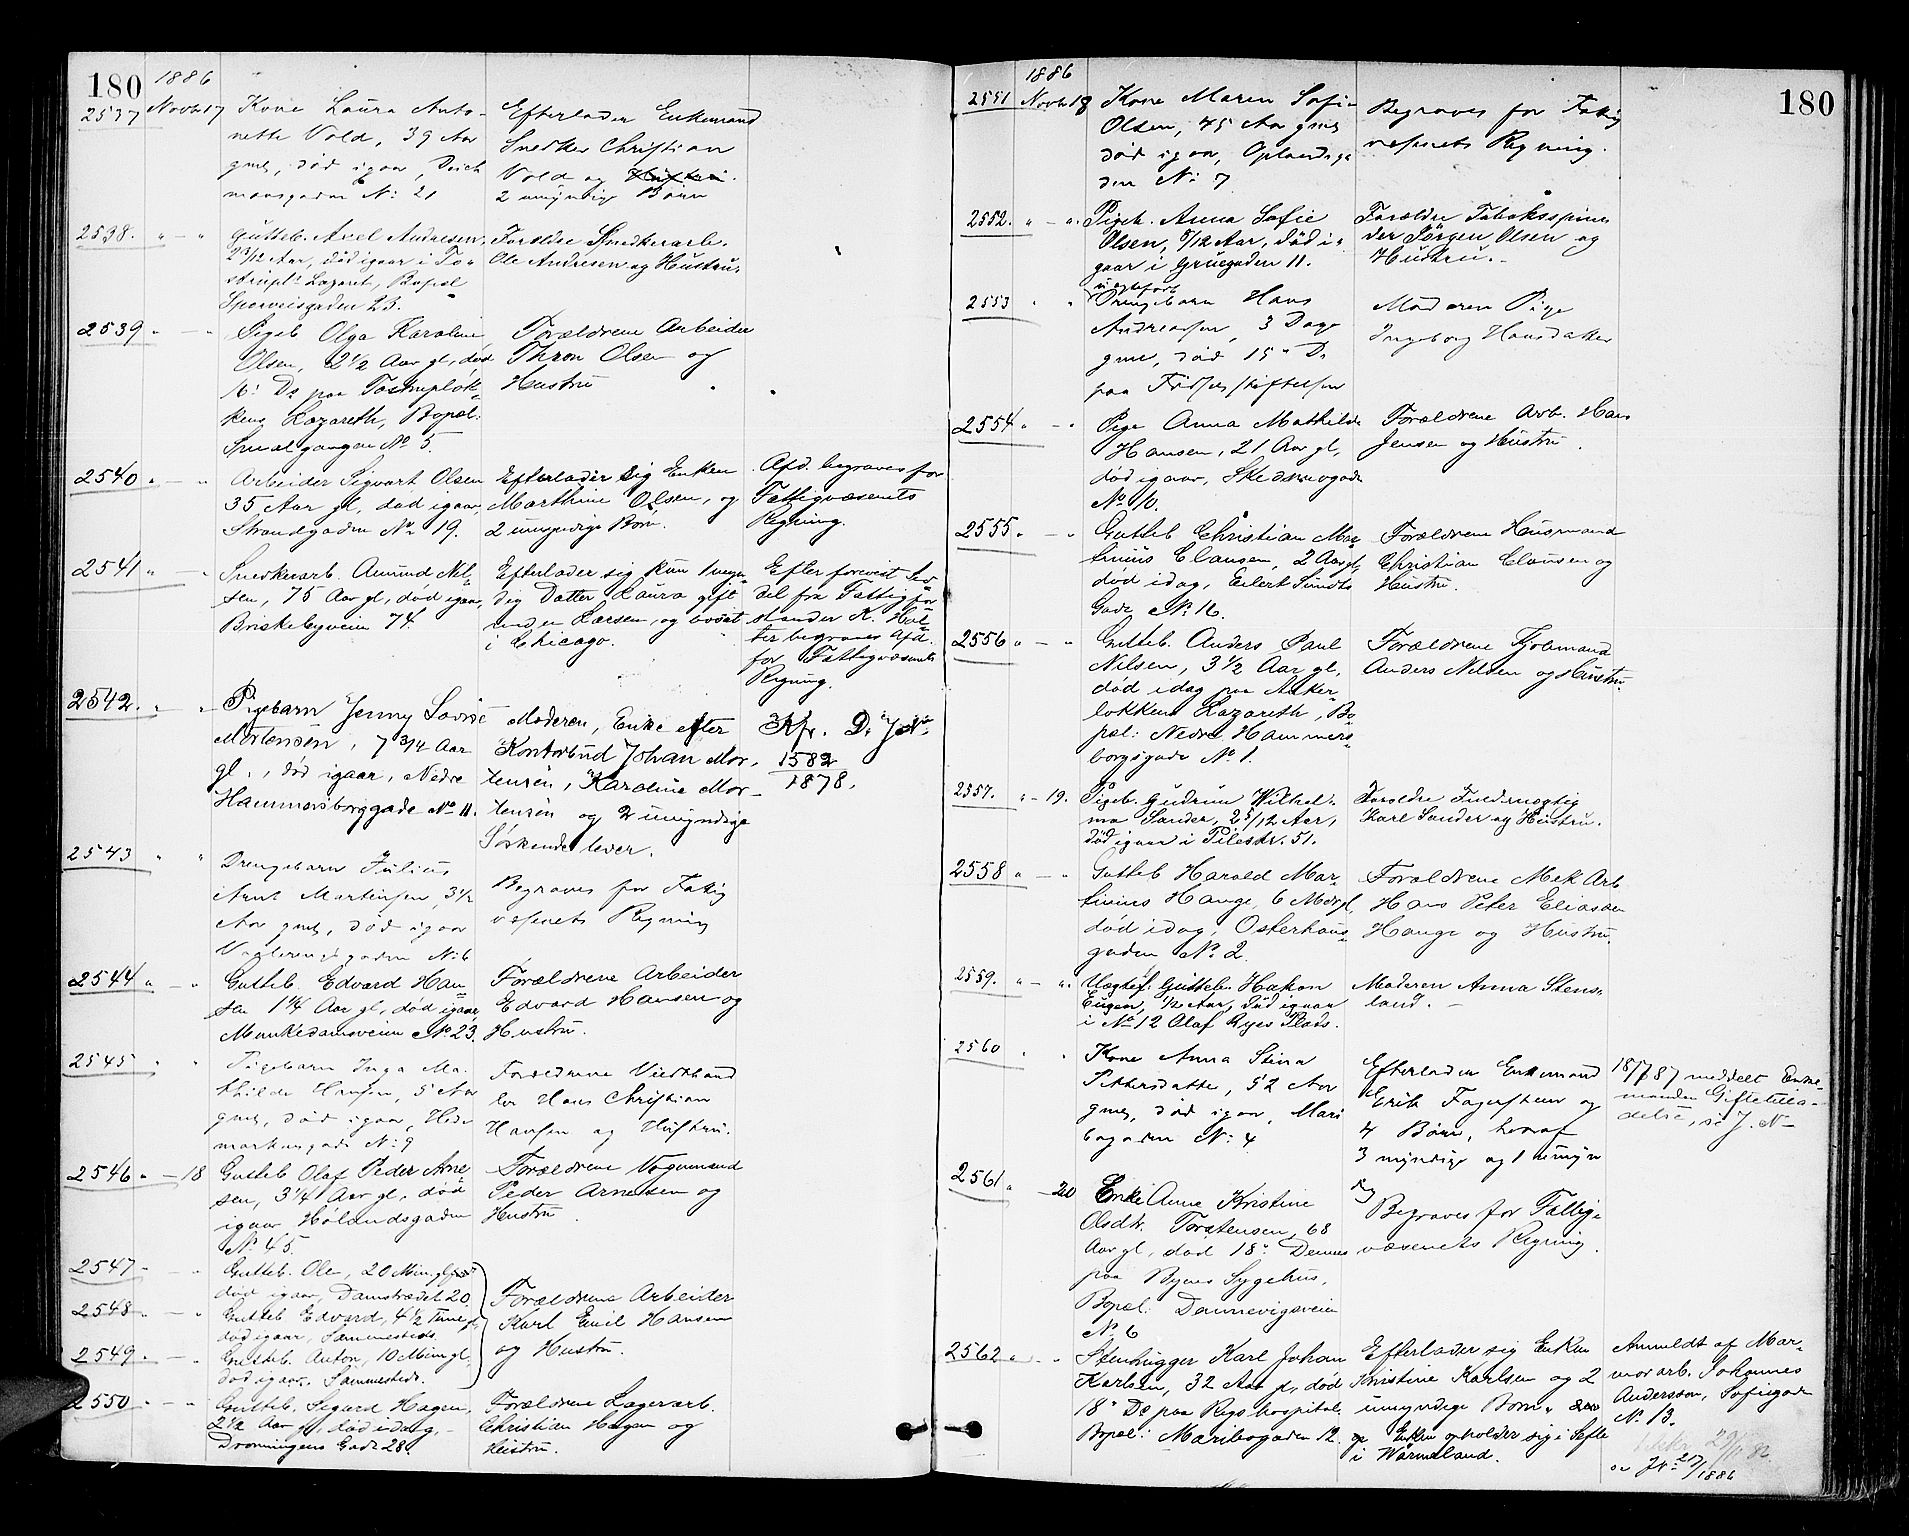 180
1886
2537 Novbr 17 Kone Laura Anto-
nette Vold, 39 Aar
gml, død igaar, Deich
mansgaden No 21
Efterlader Enkemand
Snedker Christian
Vold og
2 umyndige Børn
2538. " — " Gutteb. Axel Andresen,
død igaar i To-
Lazaret, Bopæl
Sporveisgaden 23.
Forældre Snedkerarb.
Ole Andresen og Hustru.
2539 " — " Pigeb Olga Karoline
Olsen, 2 1/2 Aar gl, død
16: Ds paa Tostrupløk-
kens Lazareth, Bopæl:
Smalgangen No 5.
Forældrene Arbeider
Thron Olsen og
Hustru
2540 " — " Arbeider Sigvart Olsen
35 Aar gl, død igaar,
Strandgaden No 19.
Efterlader sig Enken
Marthine Olsen, og
2 umyndige Børn.
Afd. begraves for
Fattigvæsenets
Regning.
2541 " — " Snedkerarb. Amund Nil-
sen, 75 Aar gl, død igaar,
Briskebyveien 74.
Efterlader sig kun 1 myn-
dig Datter Laura gift
Larsen, og bosat
i Chicago.
Efter forevist Sed-
del fra Fattigfor
stander K. Hol-
ter begraves Afd.
for Fattigvæsenets
Regning.
2542. " " Pigebarn Jenny Lovise
Mortensen, 7 3/4 Aar
gl., død igaar, Nedre
Hammersborggade No 11.
Moderen, Enke efter
Kontorbud Johan Mor-
tensen, Karoline Mor-
tensen og 2 umyndige
Søskende lever.
Kfr. D. J. No
1582
1878.
2543 " " Drengebarn Julius
Arnt Martinsen, 3 1/2
Aar gml, død igaar
Vaalerengsgaden No 6
Begraves for Fattig
væsnets Regning
2544 " — " Gutteb. Edvard Han-
sen 1 1/4 Aar gl, død igaar,
Munkedamsveien No 23.
Forældrene Arbeider
Edvard Hansen og
Hustru.
2545 " " Pigebarn Inga Ma-
thilde Hansen, 5 Aar
gml, død igaar, Hede
markengade No 9
Forældrene Viedthand
ler Hans Christian
Hansen og Hustru.
2546 " — 18 Gutteb Olaf Peder Arne-
sen, 3 1/4 Aar gl, død
igaar Hølandsgaden
No 45.
Forældrene Vognmand
Peder Arnesen og
Hustru
2547 — " Gutteb. Ole, 20 Min gl
død igaar, Damstrædet 20.
2548 " — " Gutteb Edvard, 4 1/2 Time gl
død igaar, Sammesteds.
2549 " — " Gutteb. Anton, 10 Min gl,
død igaar, Sammesteds.
Forældrene Arbeider
Karl Emil Hansen
og Hustru.
2550 " — " Gutteb. Sigurd Hagen,
2 1/2 Aar gl, død idag,
Dronningens Gade 28.
Forældrene Lagerarb.
Christian Hagen og
Hustru.
180
1886
2551 Novbr 18 Kone Maren Sofie
Olsen, 45 Aar gml
død igaar, Oplandsga
den No 7
Begraves for Fattig
væsnets Regning.
2552. " — " Pigeb. Anna Sofie
Olsen, 5/12 Aar, død i-
gaar i Gruegaden 11.
Forældre Tobaksspin-
der Jörgen Olsen og
Hustru.
2553 " " uægtefødt
Drengebarn Hans
Andreassen, 3 Dage
gml, død 15" Ds
paa Fødselsstiftelsen
Moderen Pige
Ingeborg Hansdatter
2554 " — " Pige Anna Mathilde
Hansen, 21 Aar gl,
død igaar, Skedsmogade
No 10.
Forældrene Arb. Hans
Jensen og Hustru.
2555 " — " Gutteb Christian Mar-
tinius Clausen, 2 Aar gl,
død idag, Eilert Sundts
Gade No 16.
Forældrene Husmand
Christian Clausen og
Hustru.
2556 " — " Gutteb. Anders Paul
Nilsen, 3 1/2 Aar gl,
død idag paa Anker-
løkkens Lazareth, Bo-
pæl: Nedre Hammers-
borgsgade No 1.
Forældrene
Anders Nilsen og Hustru.
2557. " — 19. Pigeb. Gudrun Wilhel-
ma Sander, 2 5/12 Aar,
død igaar i Pilestr. 51.
Forældre Fuldmægtig
Karl Sander og Hustru.
2558 " — " Gutteb Harald Mar-
tinius Hauge, 6 Mdr gl,
død idag, Osterhaus-
gaden No 2.
Forældrene Mek Arb
Hans Peter Eliassen
Hauge og Hustru.
2559. " — " Uægtef. Gutteb. Hakon
Eugen, 1/2 Aar, død igaar
i No 12 Olaf Ryes Plads.
Moderen Anna Stens-
land.
2560 " " Kone Anna Stina
Pettersdatter, 52 Aar
gml, død igaar, Mari
bogaden No 4
Efterlader Enkemand
Erik Fagerstrøm og
4 Børn, heraf
3 myndige og 1 umyn
dig
18/7 87 meddelt Enke-
manden Giftetilla-
delse, se J. No
2561 " — 20 Enke Anne Kristine
Olsdtr. Torstensen, 68
Aar gl, død 18" Dennes
paa Byens Sygehus,
Bopæl: Dannevigsveien
No 6
Begraves for Fattig-
væsenets Regning.
2562 " — " Stenhugger Karl Johan
Karlsen, 32 Aar gl, død
18" Ds paa Rigshospital.
Bopæl: Maribogaden 12.
Efterlader sig Enken
Kristine Karlsen og 2
umyndige Børn.
Enken opholder sig i Sefle
i Wärmeland.
Anmeldt af Mar-
morarb. Johannes
Andersson, Sofiegade
No 13.
1886